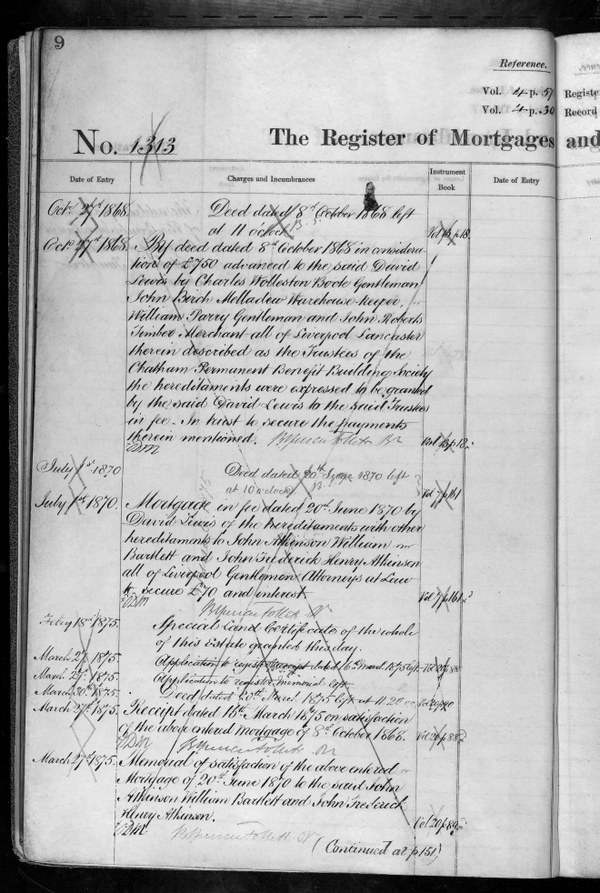 9
Reference.
Vol. 4 p. 51
Vol. 4 p. 30
Registe
Record
No. 1313
The Register of Mortgages and
Date of Entry
Charges and Incumbrances
Instrument Book
Date of Entry
Octr 27th 1868.
Deed dated 8th October 1868 left
at 11 oclock
Octr 27th 1868.
By deed dated 8th October 1868 in considera-
tion of £750 advanced to the said David
Lewis by Charles Wolleston Boote Gentleman
John Birch Melladew Warehouse-keeper,
William Parry Gentleman and John Roberts
Timber Merchant all of Liverpool Lancaster
therein described as the Trustees of the
Chatham Permanent Benefit Building Society
the hereditaments were expressed to be granted
by the said David Lewis to the said Trustees
in fee. In trust to secure the payments
therein mentioned.
July 1st 1870
Deed dated 20th June 1870 left
at 10 oclock
Vol 7 p 161
July 1st 1870.
Mortgage in fee dated 20th June 1870 by
David Lewis of the hereditaments with other
hereditaments to John Atkinson William
Bartlett and John Frederick Henry Atkinson
all of Liverpool Gentlemen Attorneys at Law
to secure £70 and interest
Vol 7 p 161
Feby 18th 1875.
Special Land Certificate of the whole
of this Estate granted this day.
March 27th 1875.
Application to regist Receipt dated
March 27th 1875.
Application to register memorial left
March 30th 1875.
Deed dated
March 27th 1875.
Receipt dated 16th March 1875 on satisfaction
of the above entered mortgage of 8th October 1868.
March 27th 1875.
Memorial of satisfaction of the above entered
Mortgage of 20th June 1870 to the said John
Atkinson William Bartlett and John Frederick
Henry Atkinson.
(Continued at p 151)